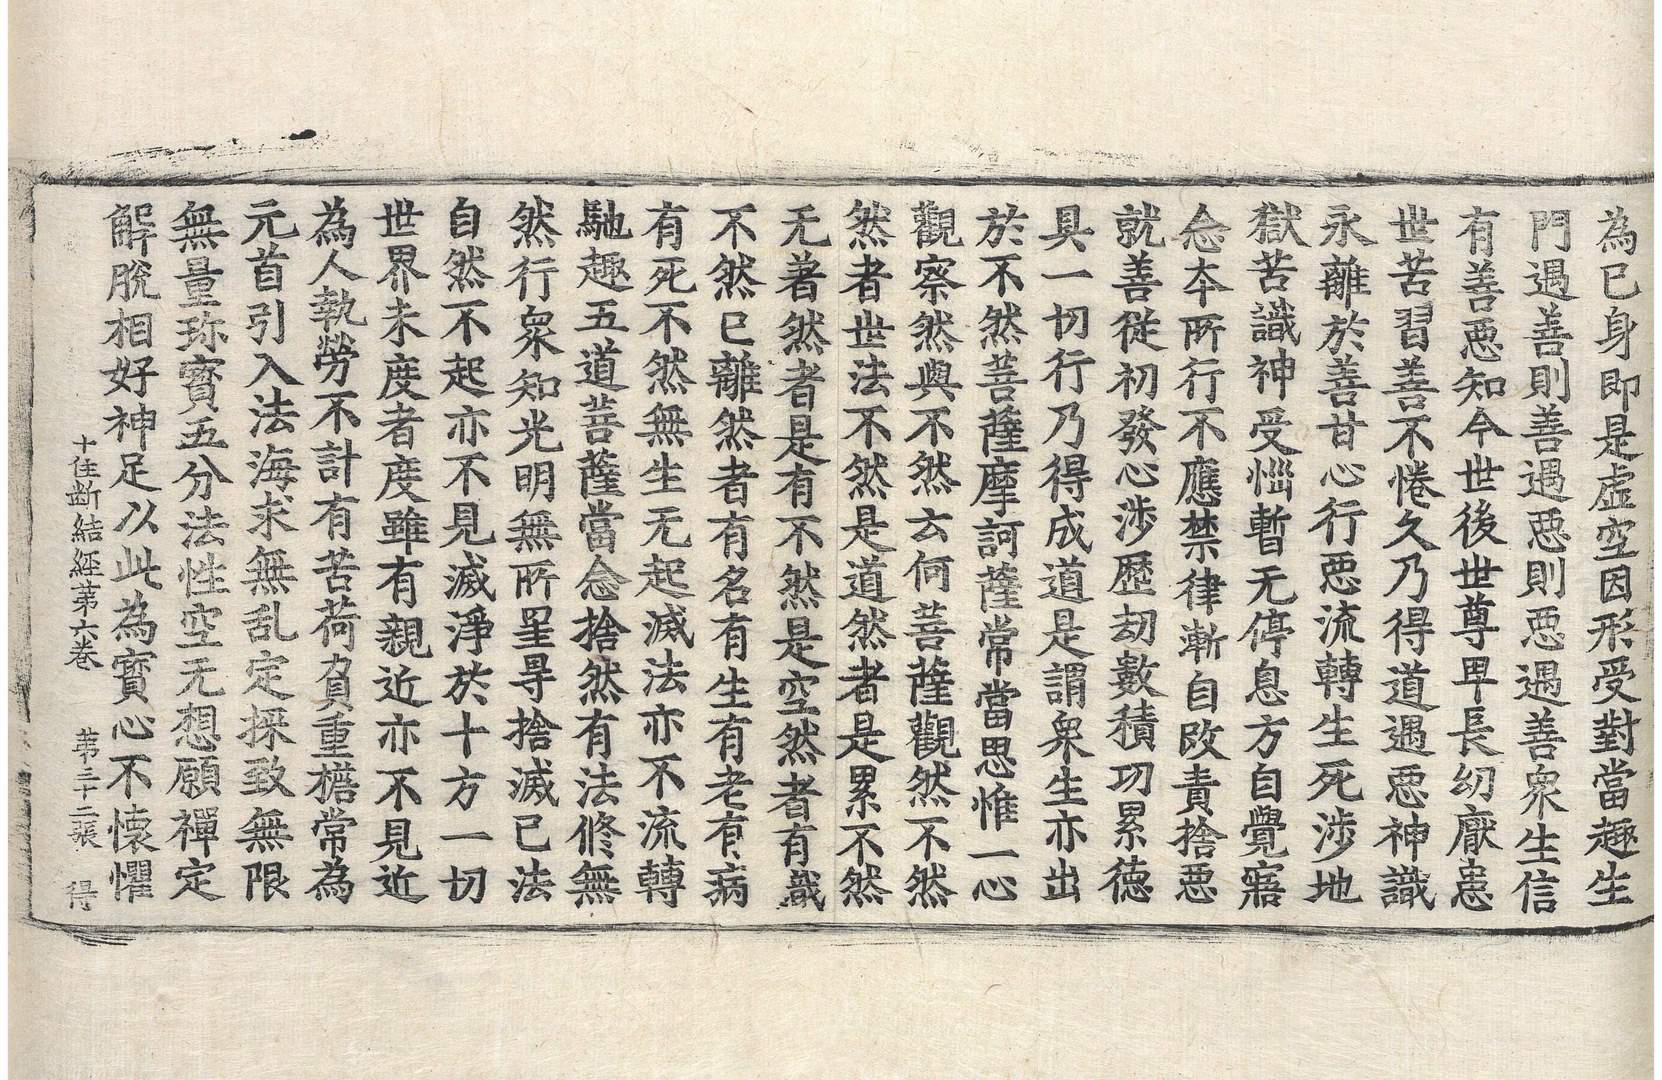 為己身即是虛空因形受對當趣生
門遇善則善遇惡則惡遇善衆生信
有善惡知今世後世尊卑長幼猒患
世苦習善不惓久乃得道遇惡神識
永離於善甘心行惡流轉生死涉地
獄苦識神受惱暫无停息方自覺寤
念本所行不應禁律漸自改責捨惡
就善從初發心涉歷劫數積功累德
具一切行乃得成道是謂衆生亦出
於不然菩薩摩訶薩常當思惟一心
觀察然與不然云何菩薩觀然不然
然者世法不然是道然者是累不然
无著然者是有不然是空然者有識
不然已離然者有名有生有老有病
有死不然無生无起滅法亦不流轉
馳趣五道菩薩當念捨然有法修無
然行衆知光明無所罣㝵捨滅已法
自然不起亦不見滅淨於十方一切
世界未度者度雖有親近亦不見近
為人執勞不計有苦荷負重檐常為
元首引入法海求無乱定採致無限
無量珎寳五分法性空无想願禪定
解脫相好神足以此為寳心不懷懼
十住斷結經苐六卷　苐三十二張　得